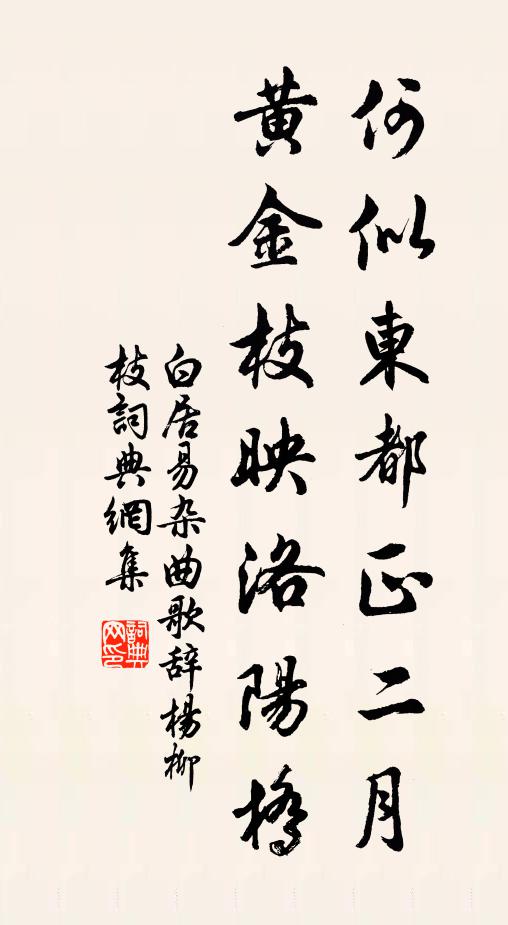 何似東都正二月
黃金枝映洛陽橋
白居易杂曲歌辞楊柳
枝詞典網集
詞典
网印